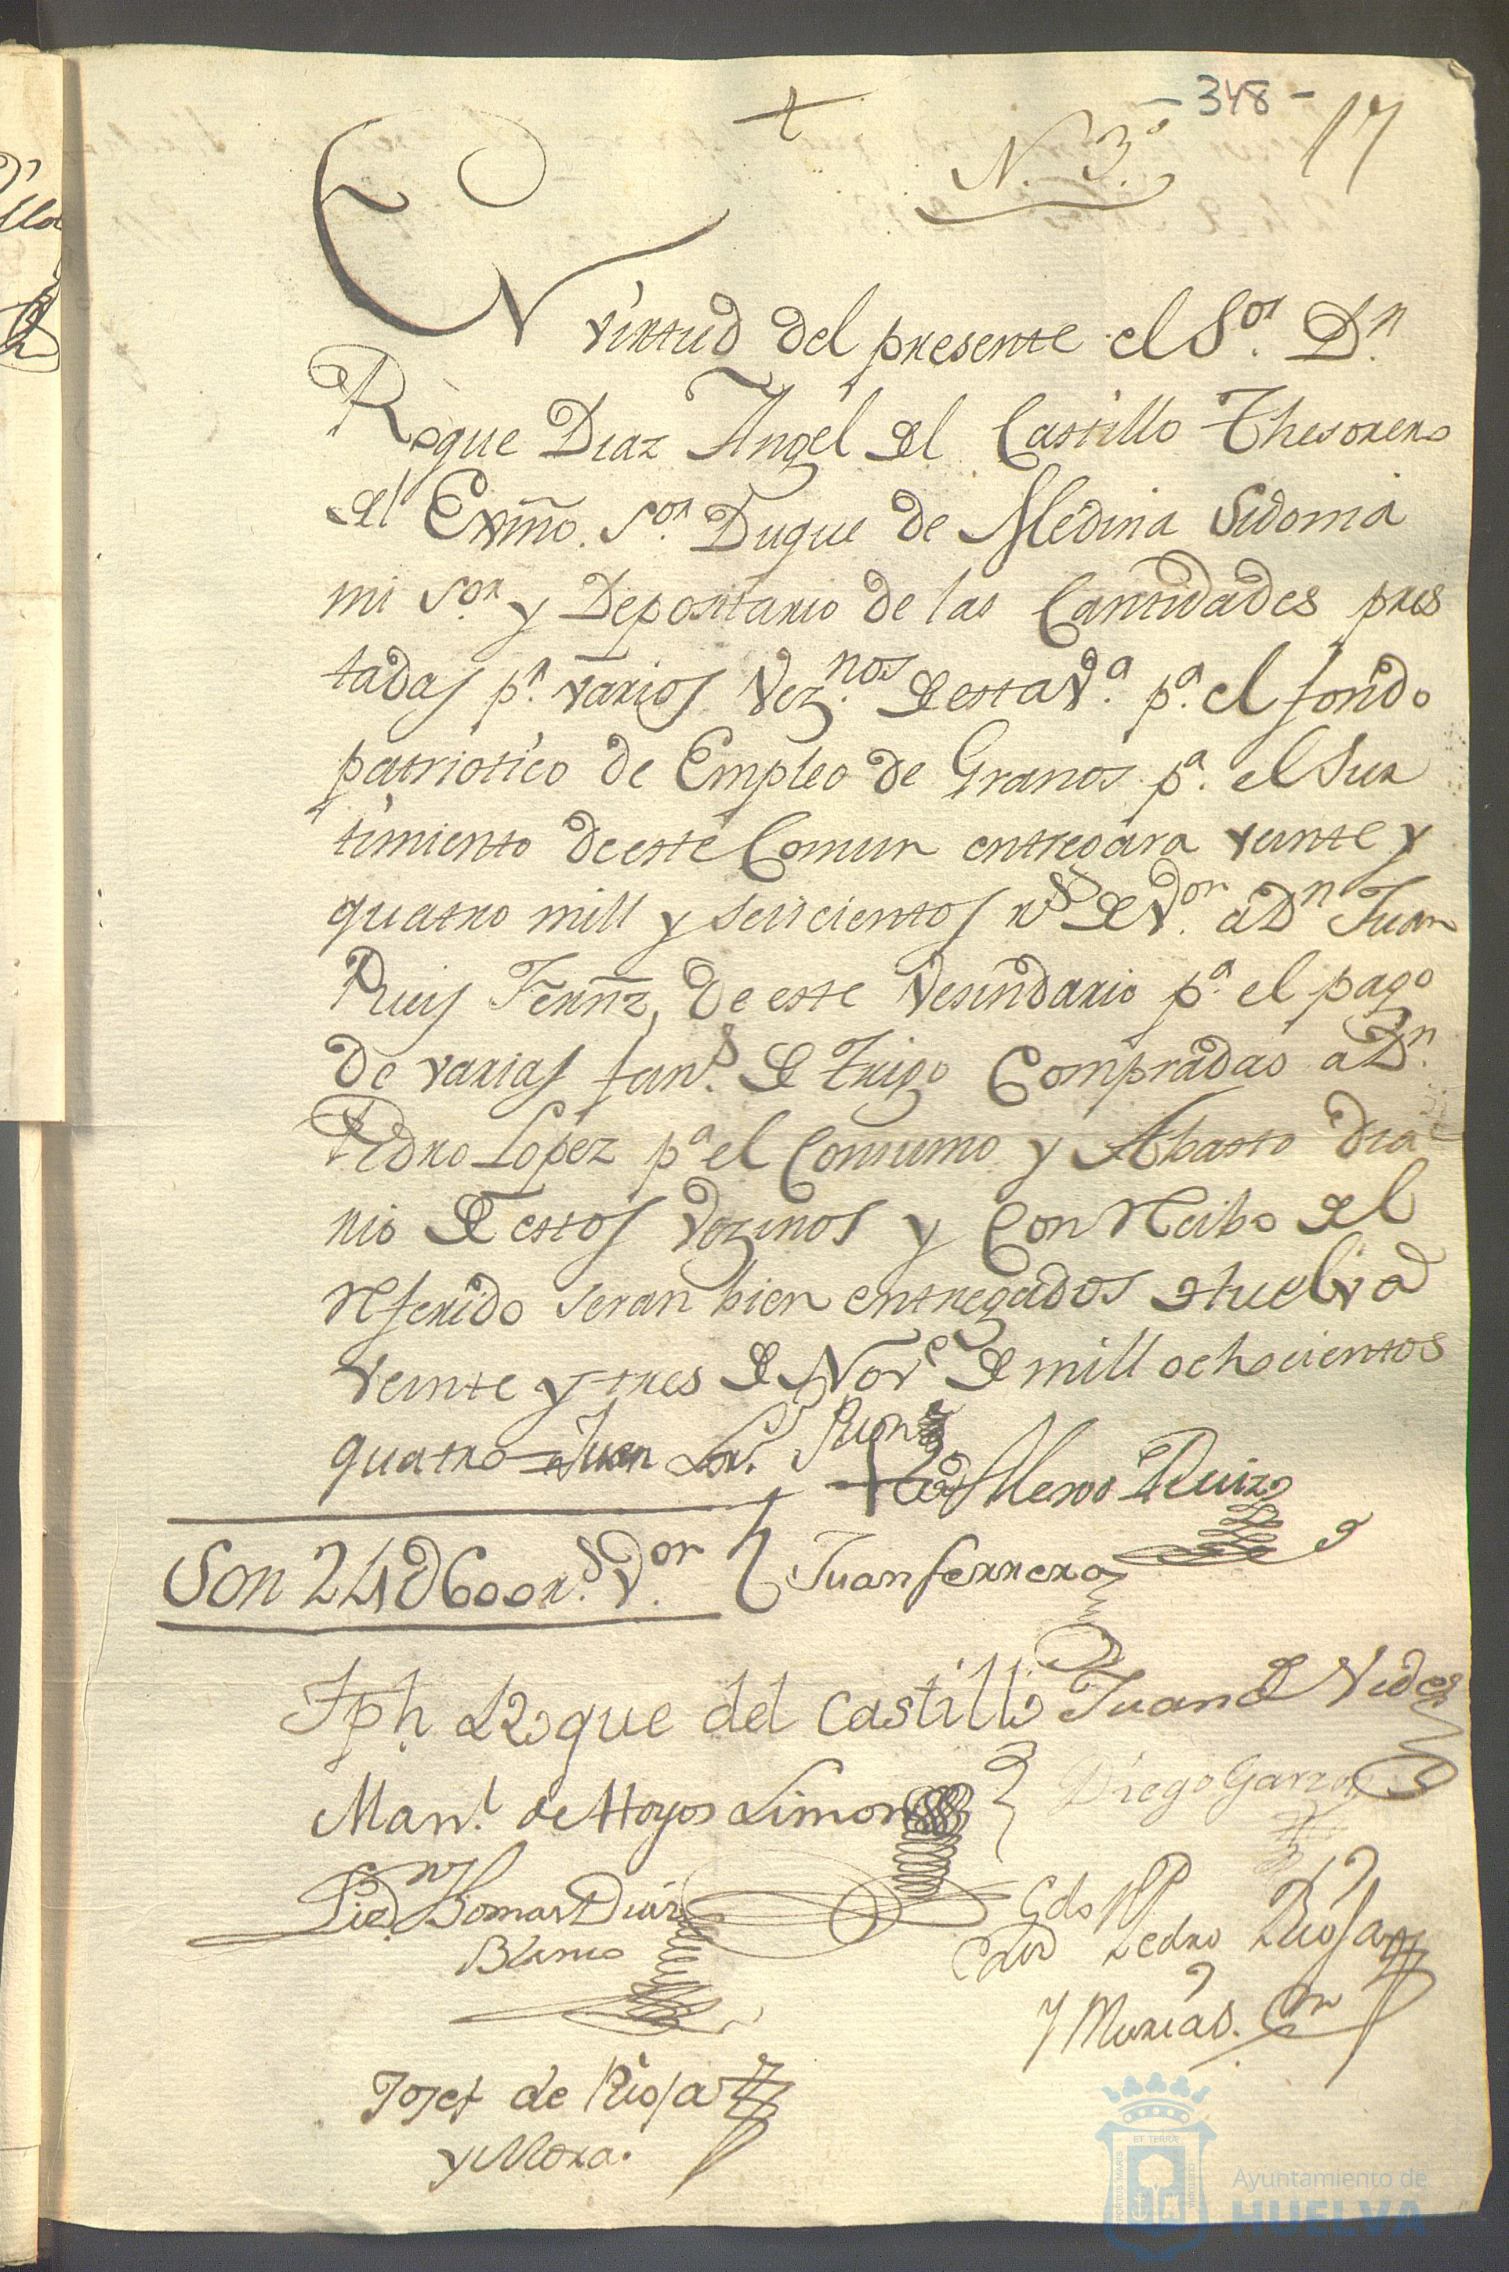 - 348 -
N. 3.º 17
EN virtud del presente el S.or D.n
Roque Diaz Angel del Castillo Thesorero
del Exmo. S.or Duque de Medina Sidonia
mi S.or y Depositario de las Cantidades pres
tadas p.r varios Vez.nos de esta V.a p.a el fondo
patriotico de Empleo de Granos p.a el Sur
timiento de este Comun entregara veinte y
quatro mill y seiscientos r.s de V.on a D.n Juan
Ruis Fernz, de este Vesindario p.a el pago
de varias fan.s de Trigo Compradas a D.n
Pedro Lopez p.a el Consumo y Abasto dia
rio de estos Vezinos y Con Recibo del
Referido seran bien entregados Huelva
veinte y tres de Nov.e de mill ochocientos
quatro = Juan
Son 24d600 r.s V.on
Alexo Ruiz
Juan Ferrera
Jph Roque del Castillo Juan de Vides
Man.l de Hoyos Limon Diego Garzon
Lic.do Thomas Diaz
Blanco
Pedro Rioja
y Murias.
Josef de Rioja
y Mora.
PORTUS MARIS
ET TERRAE
CUSTODIA
Ayuntamiento de
HUELVA